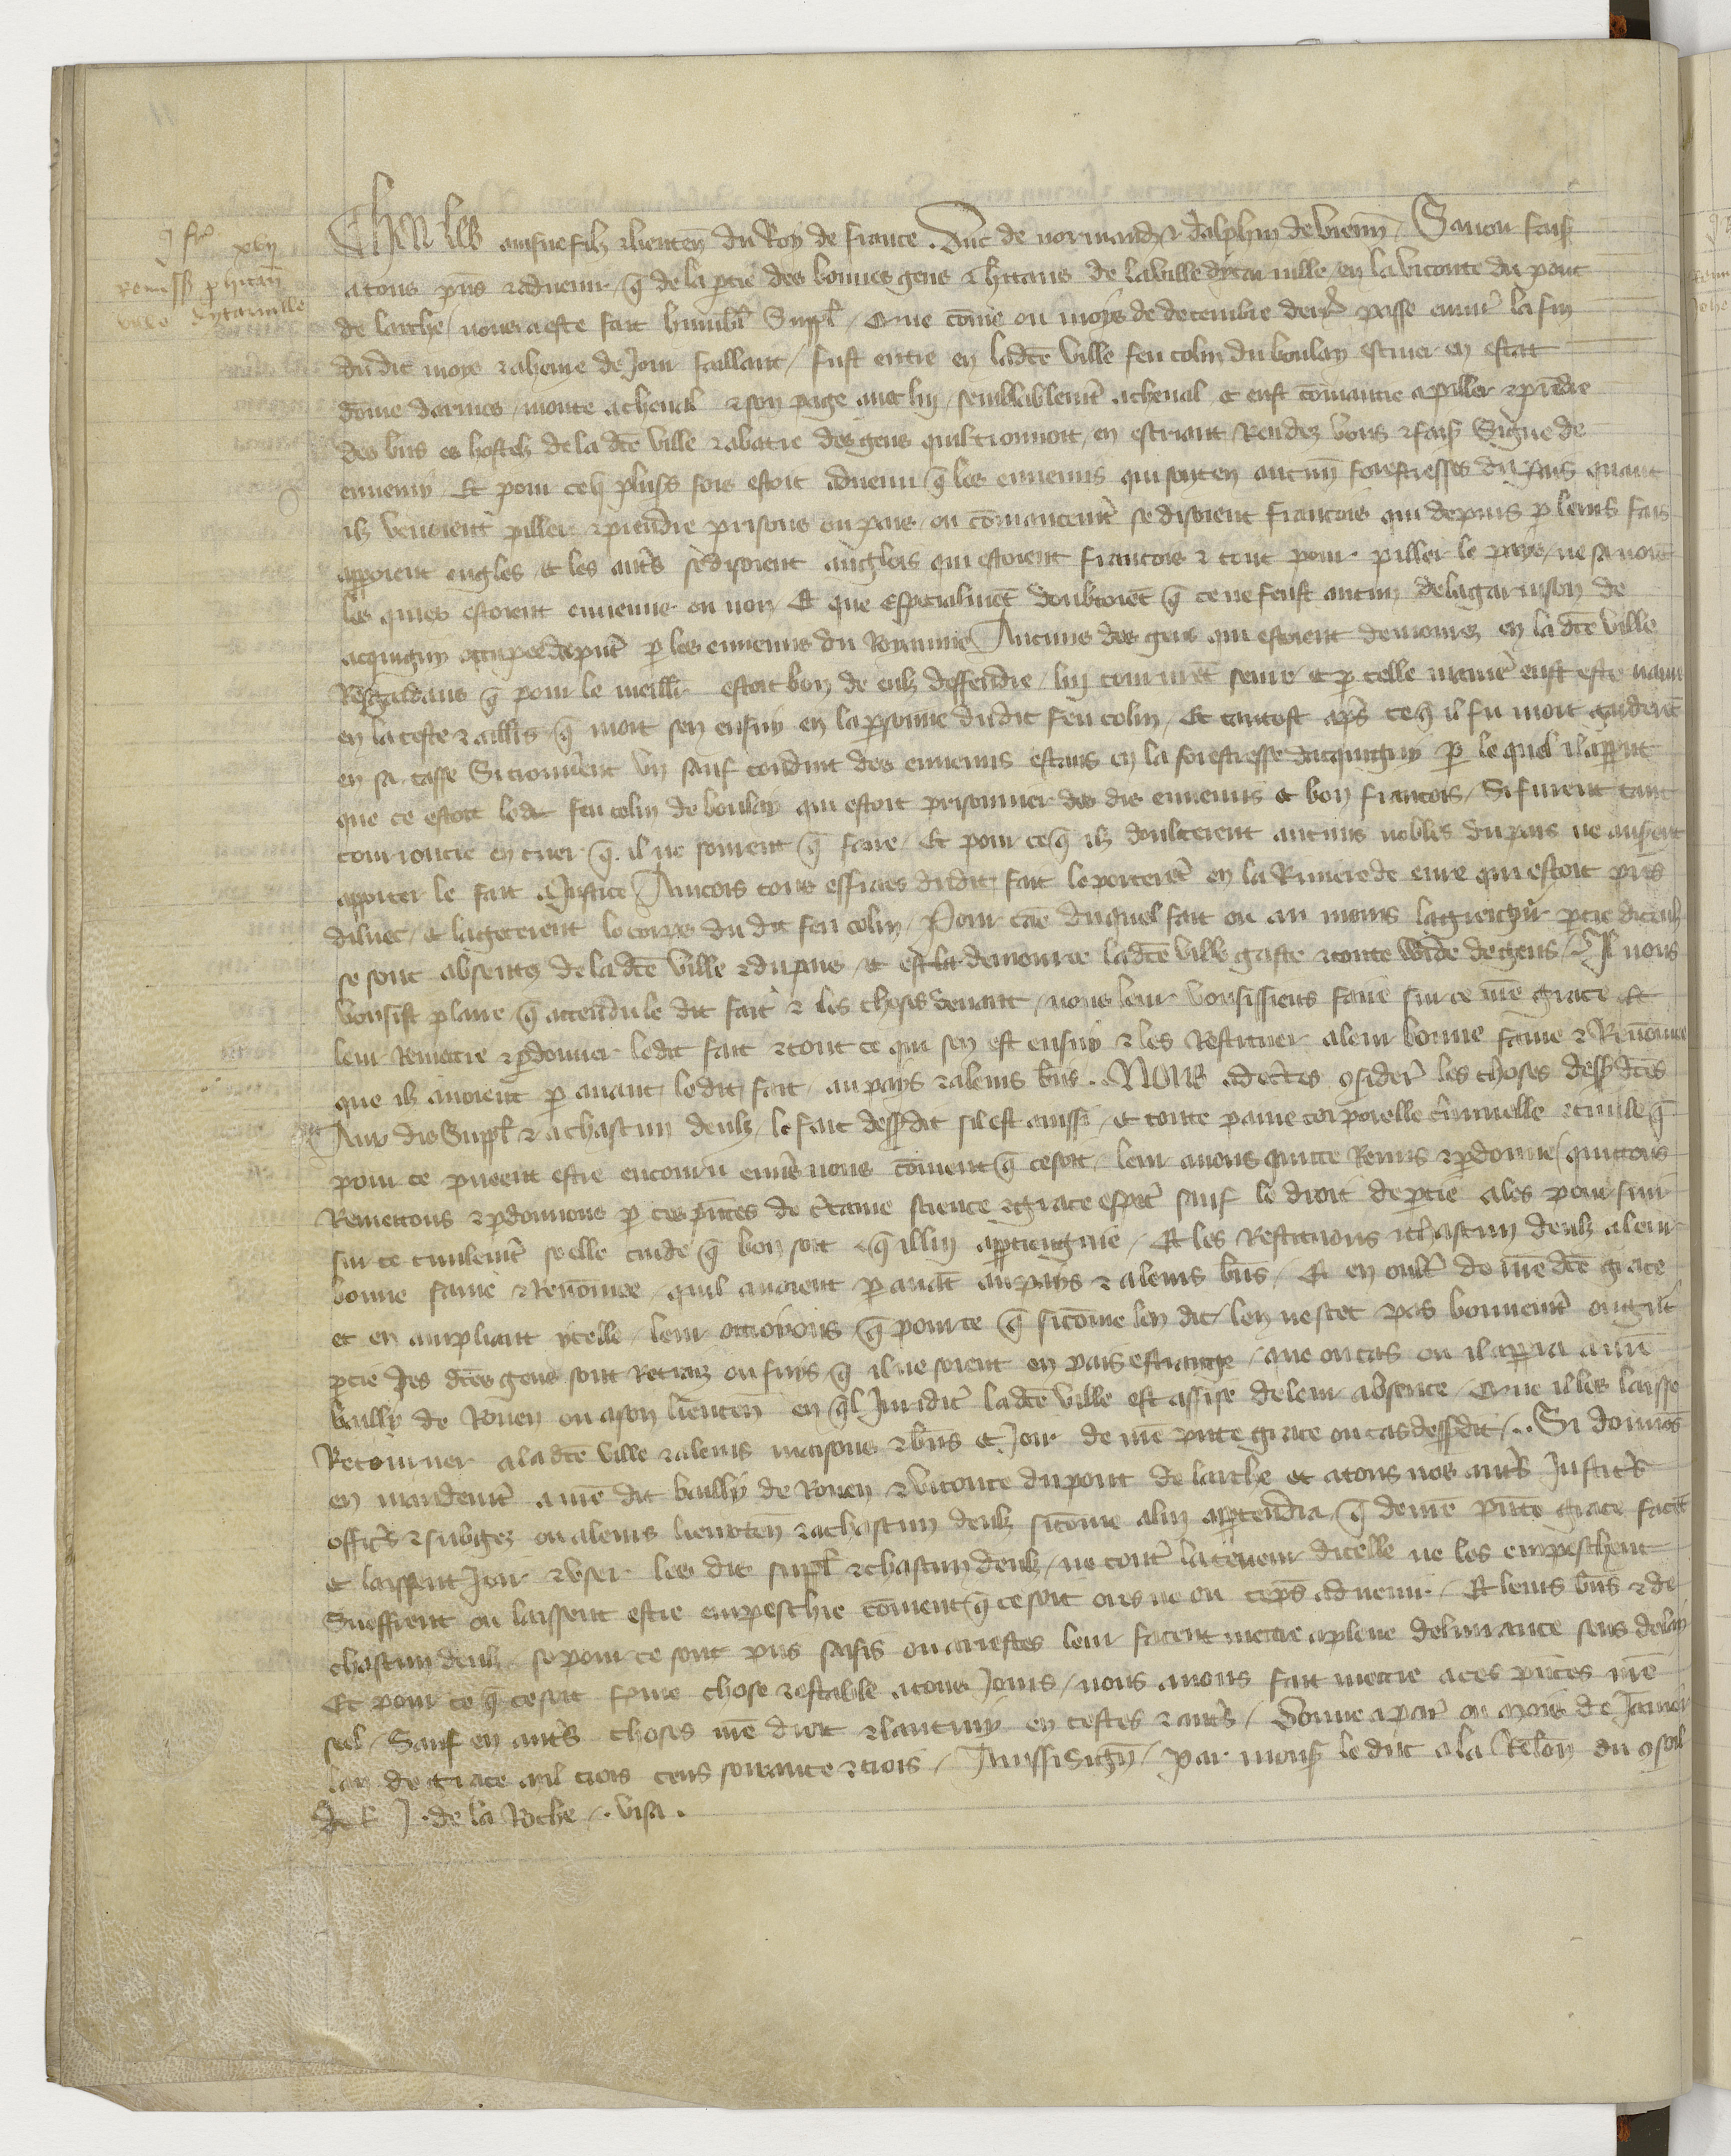 xvii
remissio p habitan
ville dytarville
Charles ainsne filz & lieuten du Roy de france Duc de normandie & dalphin de vienn Savoir fais
a tous pns & advenir q de la ptie des bonnes gens & hitans de la ville dytarville en la viconte du pont
de larche nous a este fait humbl suppl Que come ou moys de decembre derr passe envir la fin
du dit moys & a heure de jour faillant fust entre en ladce ville feu colin du boulay escuier en estat
dome darmes monte a cheval & son page avec luy semblablemt a cheval et eust comancie a piller & prendre
des bns es hostelz de la dce ville & abatre des gens quil trouvoit en escriant Rendez vous & fais signe de
ennemy Et pour ce q pluss fois estoit advenu q les ennemis qui sont en aucun forestresses du pais quant
ilz venoient piller & prendre prisons ou pais ou comancemt se disoient francois qui depuis p leurs fais
apperoient engles et les auts se disoient anglois qui estoient francois & tout pour piller le pays ne savoit
les quies estoient ennemis ou non Et que especialmet doubtoiet q ce ne feust aucun de la garnison de
acquigny occupee deput p les ennemis du Royaume Aucuns des gens qui estoient demourez en la dce ville
Resgardans q pour le meillr estoit bon de eulz deffendre luy coururet seure et p telle manie eust este navre
en la teste & aillrs q mort sen ensuy en la personne du dit feu colin Et tantost aps ce q il fu mort garderet
en sa tasse Si trouverent un sauf conduit des ennemis estans en la forestresse dacquigny p le quel il apparut
que ce estoit le dit feu colin de boulay qui estoit prisonnier des dis ennemis et bon francois Si furent tant
courroucie en cuer q il ne sorent q faire Et pour ce q ilz doubterent aucuns nobles du pais ne aussent
apporter le fait a Justice Aincois tous effraes du dit fait le porteret en la Riviere de eure qui estoit pres
diluec et la getterent le corps du dit feu colin Pour cae duquel fait ou au moins la greigneur ptie diceulz
se sont absentez de la dce ville & du pais et est la demouree ladce ville gaste & toute wide de gens Si nous
vousist plaire q attendu le dit fait & les choses devant nous leur vousissiens faire sur ce me grace et
leur Remettre & pdonner le dit fait & tout ce qui sen est ensuy & les Restituer a leur bonne fame & Renomee
que ilz avoient p avant le dit fait au pays & a leurs bns. NOUS adectes consider les choses dessdces
Aux dis suppl & a chascun deulz le fait dessdit sil est ainssi et toute paine corporelle criminelle & civile q
pour ce pueent estre encouru envers nous coment q ce soit leur avons quitte Remis & pdonne quittons
Remettons & pdonnons p ces pntes de certaine science & grace especl sauf le droit de ptie a les poursuir
sur ce civilemt se elle cuide q bon soit & q il luy appartiengnie Et les Restituons & chascun deulz a leur
bonne fame & Renomee quil avoient p avat au pays & a leurs bns Et en oult de ure dce grace
et en ampliant ycelle leur octroions q pour ce q sicome len dit len ne scet pas bonnemt ou grt
ptie des dces gens sont Retraiz ou fuis q il ne soient en pais estrange que ou cas ou il appra a nre
bailly de Rouen ou a son lieuten en ql Juridic ladce ville est assise de leur absence Que il les laisse
Retourner a la dce ville & a leurs maisons & bns et joir de nre pnte grace ou cas dessdit Si donnos
en mandemt a nre dit bailly de Rouen & viconte du pont de larche et a tous nos auts Justicrs
officrs & subgez ou a leurs lieuxten & a chascun deulz sicome a luy appartendra q de nre pnte grace facet
et laissent joir & user les dis suppl & chascun deulz ne contr la teneur dicelle ne les empeschent
sueffrent ou laissent estre empeschie coment q ce soit ores ne ou teps advenir Et leurs bns & de
chascun deulz se pour ce sont pris saisis ou arrestes leur facent mettre a plene delivrance sens delay
Et pour ce q ce soit ferme chose & estable a tous jours nous avons fait mettre a ces pntes nre
seel Sauf en auts choses nre droit & lautruy en testes & auts Donne a par ou mois de Janvier
lan de grace mil trois cens soixante & trois Ainssi sign Par mons le duc a la Relon du consoil
J. de la Roche. visa.